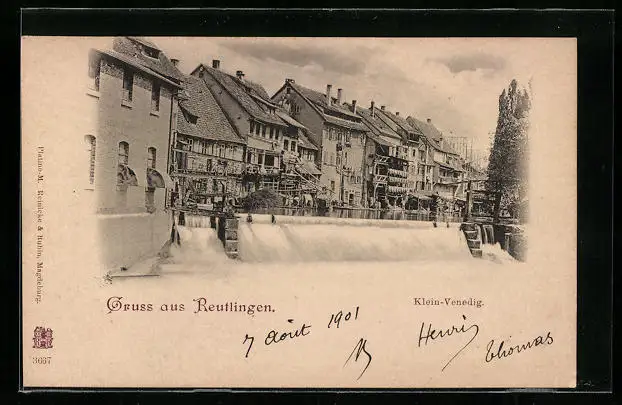 Platino-M. Reinicke & Rubin, Magdeburg.
Gruss aus Reutlingen.
Klein-Venedig.
7 Août 1901
Henri
Thomas
3667